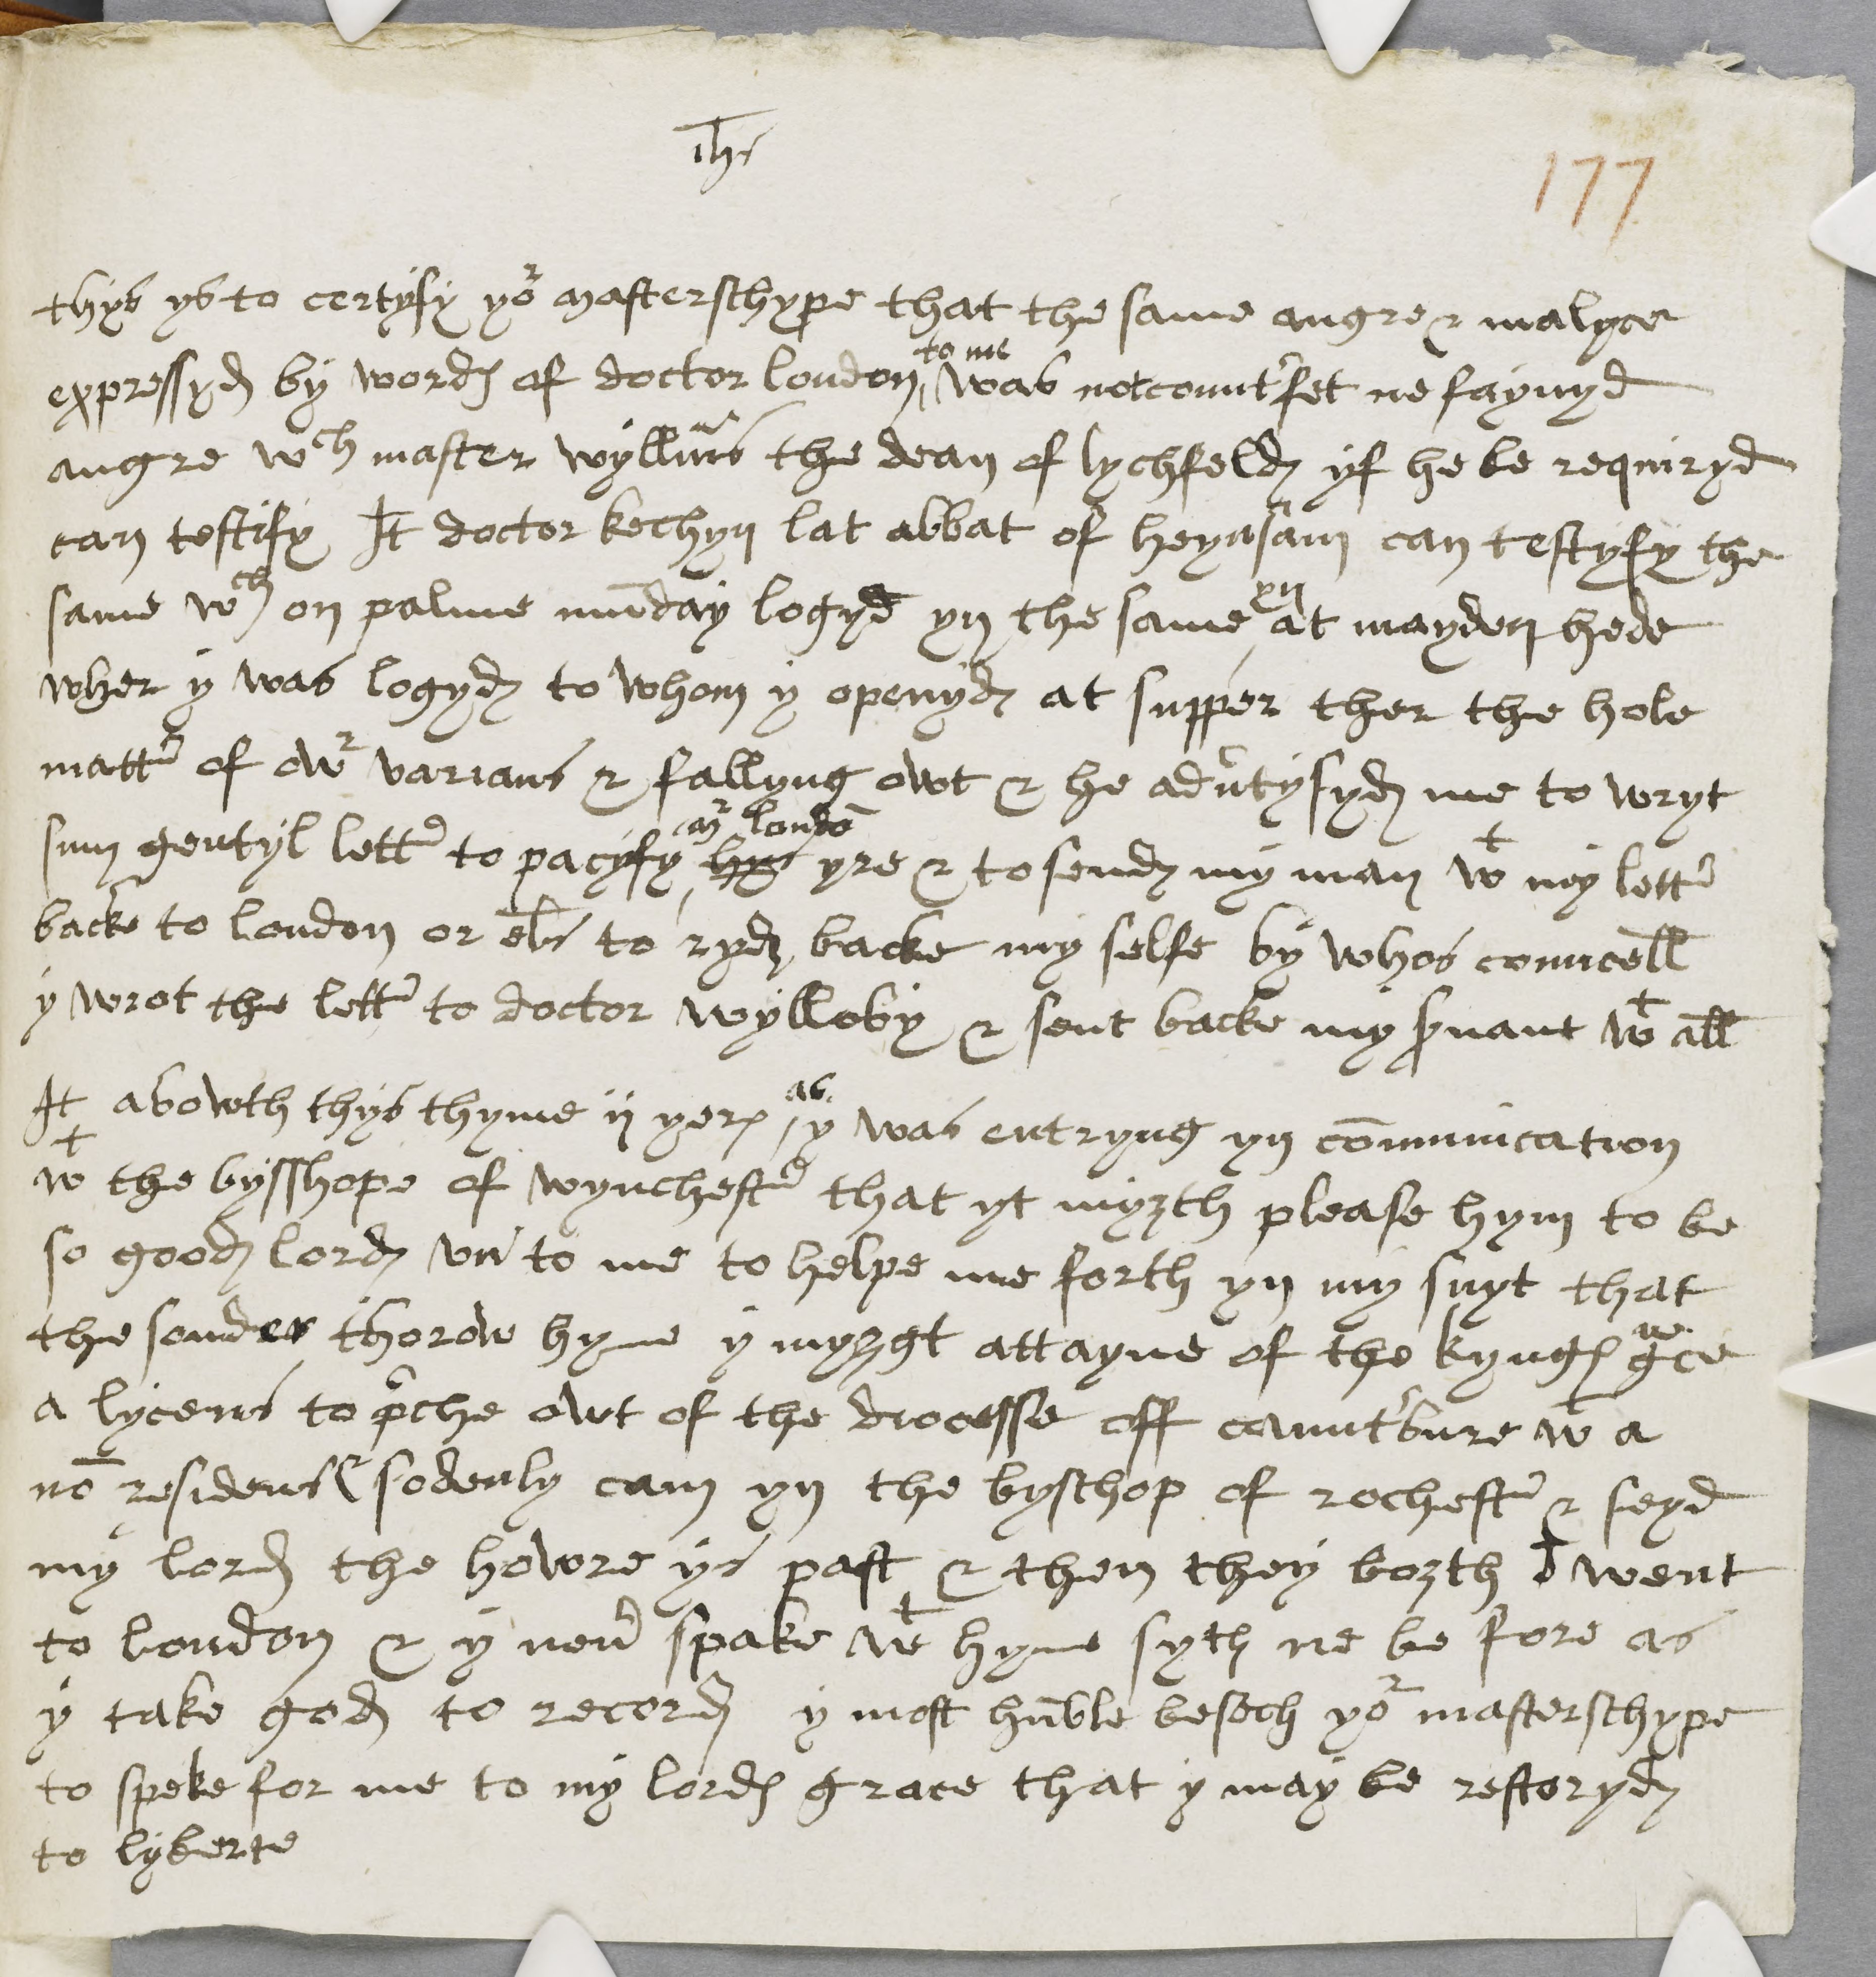 Ihs
177
thys ys to certyfy yor masterschype that the same angre & malyce
expressyd by words of doctor london to me was not count'fet ne faynyd
angre wch master wyllms the dean of lychfeld yf he be requiryd
can testify It doctor kechyn lat abbat of heynsam can testyfy the
same wch on palme mūday logyd yn the same yn at mayden hede
wher y was logyd to whom y openyd at supper ther the hole
matt' of owr varians & fallyng owt & he adv'tysyd me to wryt
sum gentyl lett' to pacyfy hys mr londō yre & to send my man wt my lett'
backe to london or els to ryd backe my selfe by whos councell
y wrot the lett' to doctor wylloby & sent backe my s'vant wt all
It abowth thys thyme ij yers as y was entryng yn cōmunication
wt the bysshope of wynchest' that yt myzth please hym to be
so good lord vn to me to helpe me forth yn my suyt that
the sonder thorow hyme y myzgt attayne of the kyngs gce
a lycens to p'che owt of the diocesse off caunt'bure wt a
nō residens & sodenly cam yn the byschop of rochest' & seyd
my lord the howre ys past & then they bozth went
to london & y nev' spake wt hyme syth ne be fore as
y take god to record y most hūble besech yor masterschype
to speke for me to my lords grace that y may be restoryd
to lyberte